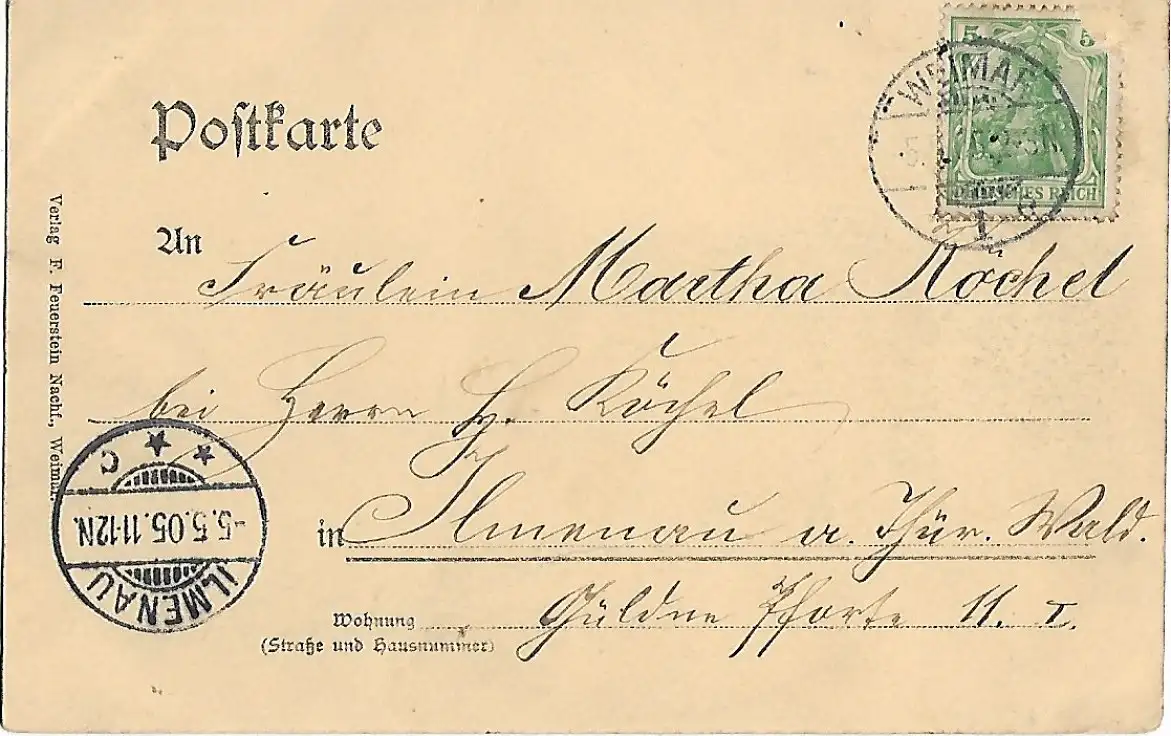 Postkarte
5 5
DEUTSCHES REICH
WEIMAR
1
An
Fräulein Martha Köchel
bei Herrn H. Köchel
in Ilmenau a. Thür. Wald.
Wohnung Güldne Pforte 11. I.
(Straße und Hausnummer)
Verlag F. Feuerstein Nachf., Weimar.
ILMENAU
-5.5.05.11-12N.
* * C